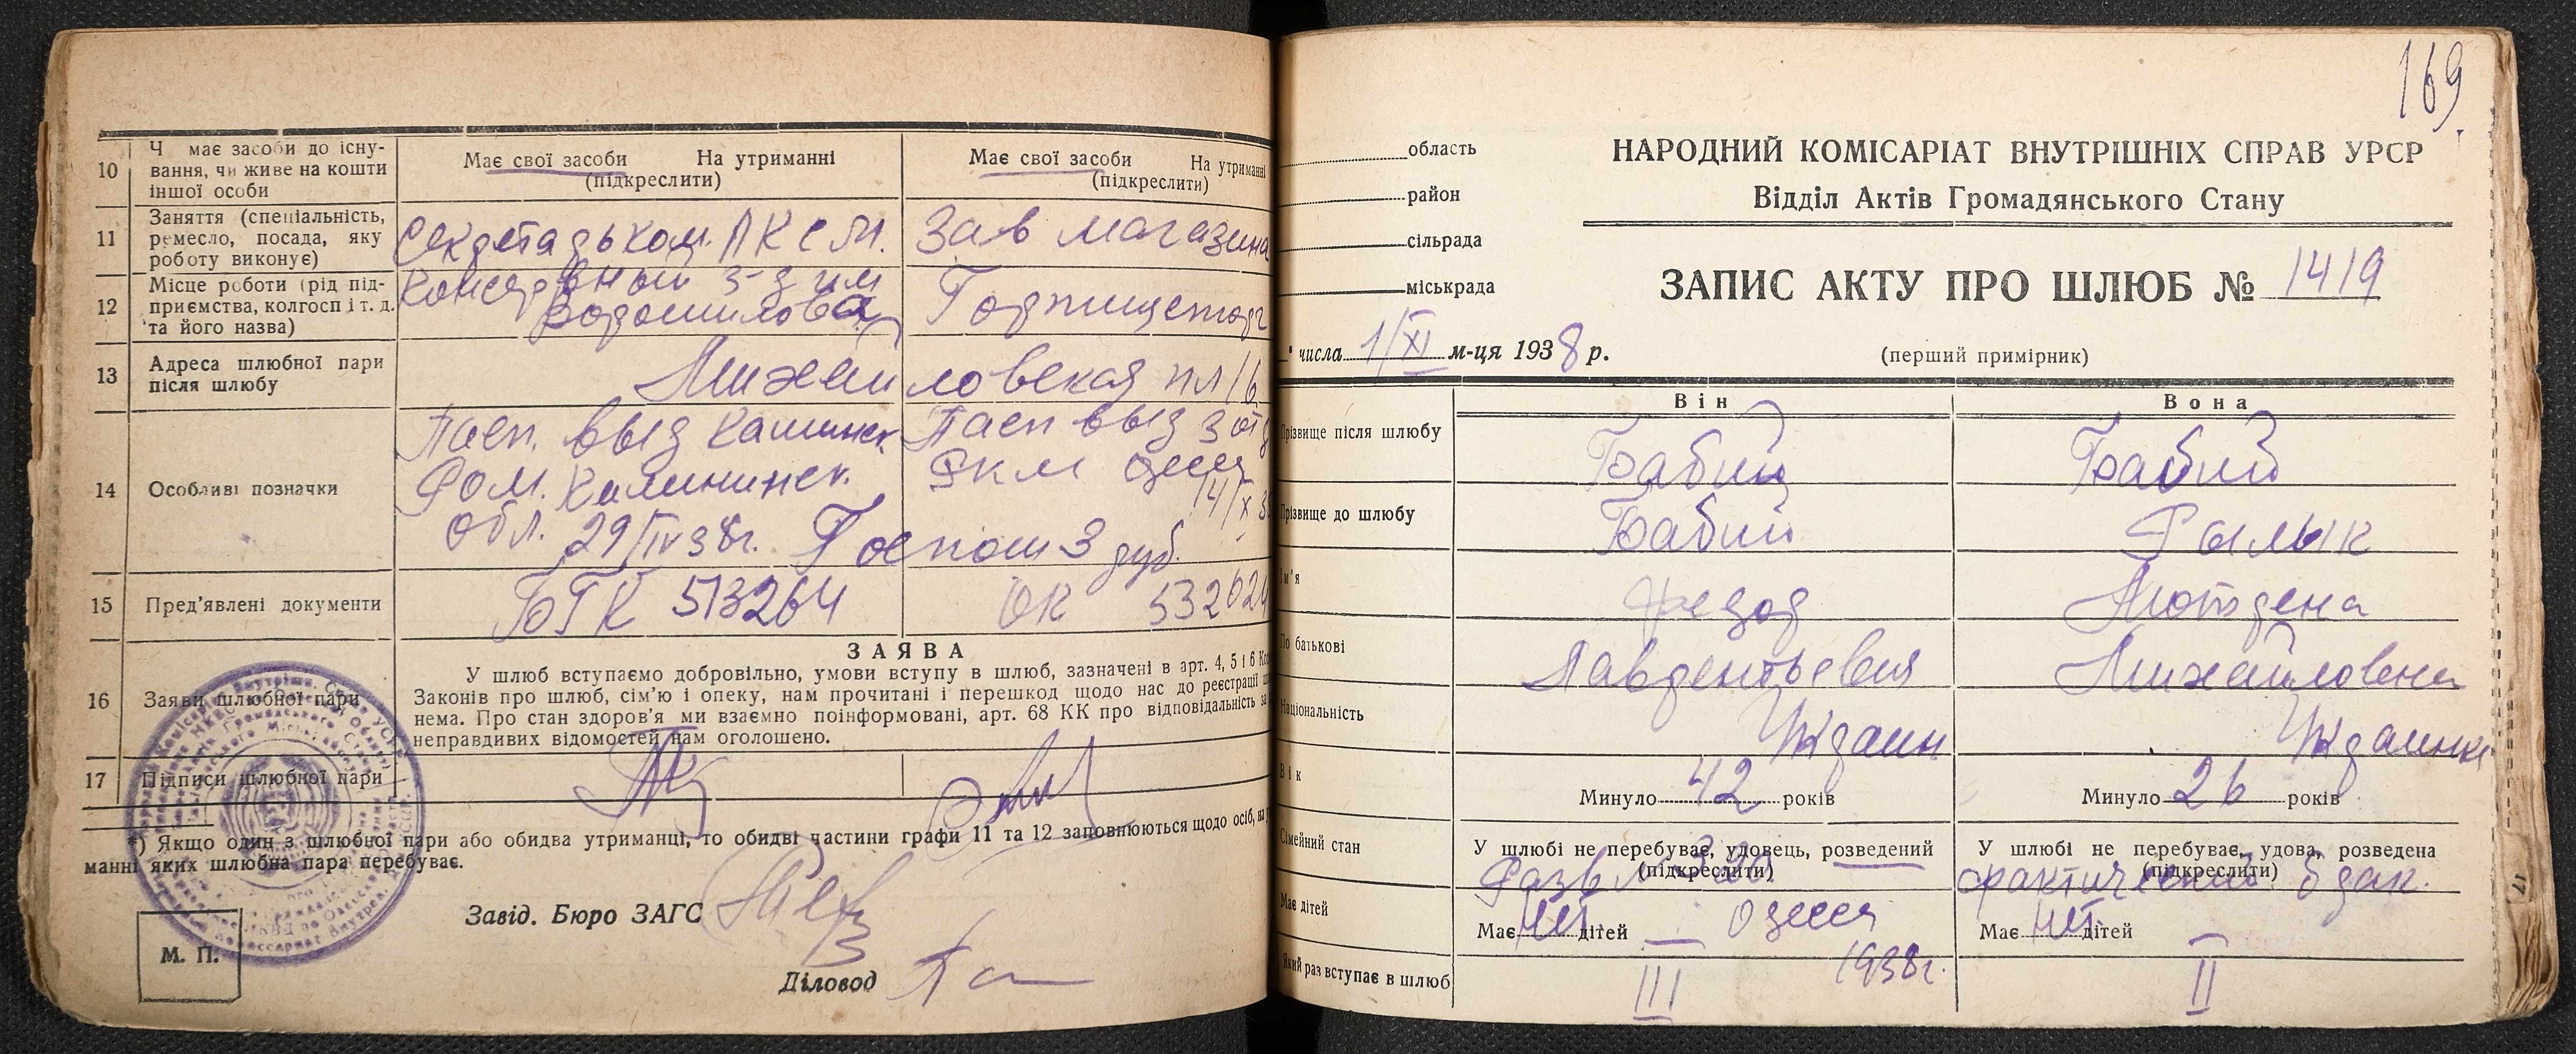 10
Ч має засоби до існу-
вання, чи живе на кошти
іншої особи
Має свої засоби На утриманні
(підкреслити)
Має свої засоби На утриманні
(підкреслити)
11
Заняття (спеціальність,
ремесло, посада, яку
роботу виконує)
Секретарь ком. ЛКСМ.
Зав магазина
12
Місце роботи (рід під-
приємства, колгосп і т. д.
та його назва)
Консервный з-д им
Ворошилова
Горпищеторг
13
Адреса шлюбної пари
після шлюбу
Михайловская пл 16
14
Особливі позначки
Пасп. выд Калининск.
РОМ. Калининск.
Обл. 29/IV 38г.
Пасп выд 3 отд
РКМ Одесс
14/X 3
Госпош 3 руб.
15
Пред'явлені документи
БГК 513264
ОК 532624
16
Заяви шлюбної пари
ЗАЯВА
У шлюб вступаємо добровільно, умови вступу в шлюб, зазначені в арт. 4, 5 і 6 Ко
Законів про шлюб, сім'ю і опеку, нам прочитані і перешкод щодо нас до реєстрації
нема. Про стан здоров'я ми взаємно поінформовані, арт. 68 КК про відповідальність за
неправдивих відомостей нам оголошено.
17
Підписи шлюбної пари
*) Якщо один з шлюбної пари або обидва утриманці, то обидві частини графи 11 та 12 заповнюються щодо осіб, на
манні яких шлюбна пара перебуває.
Завід. Бюро ЗАГС
Діловод
М. П.
169
область
район
сільрада
міськрада
НАРОДНИЙ КОМІСАРІАТ ВНУТРІШНІХ СПРАВ УРСР
Відділ Актів Громадянського Стану
ЗАПИС АКТУ ПРО ШЛЮБ № 1419
" числа 1/XI м-ця 1938 р.
(перший примірник)
Він
Вона
Прізвище після шлюбу
Бабий
Бабий
Прізвище до шлюбу
Бабий
Рылык
Ім'я
Федор
Мотрена
По батькові
Лаврентьевич
Михайловна
Національність
Украин
Украинка
Вік
Минуло 42 років
Минуло 26 років
Сімейний стан
У шлюбі не перебуває, удовець, розведений
(підкреслити)
У шлюбі не перебуває, удова, розведена
(підкреслити)
фактический брак.
Має дітей
Має нет дітей
Одесса
1938г.
Має нет дітей
Який раз вступає в шлюб
III
II